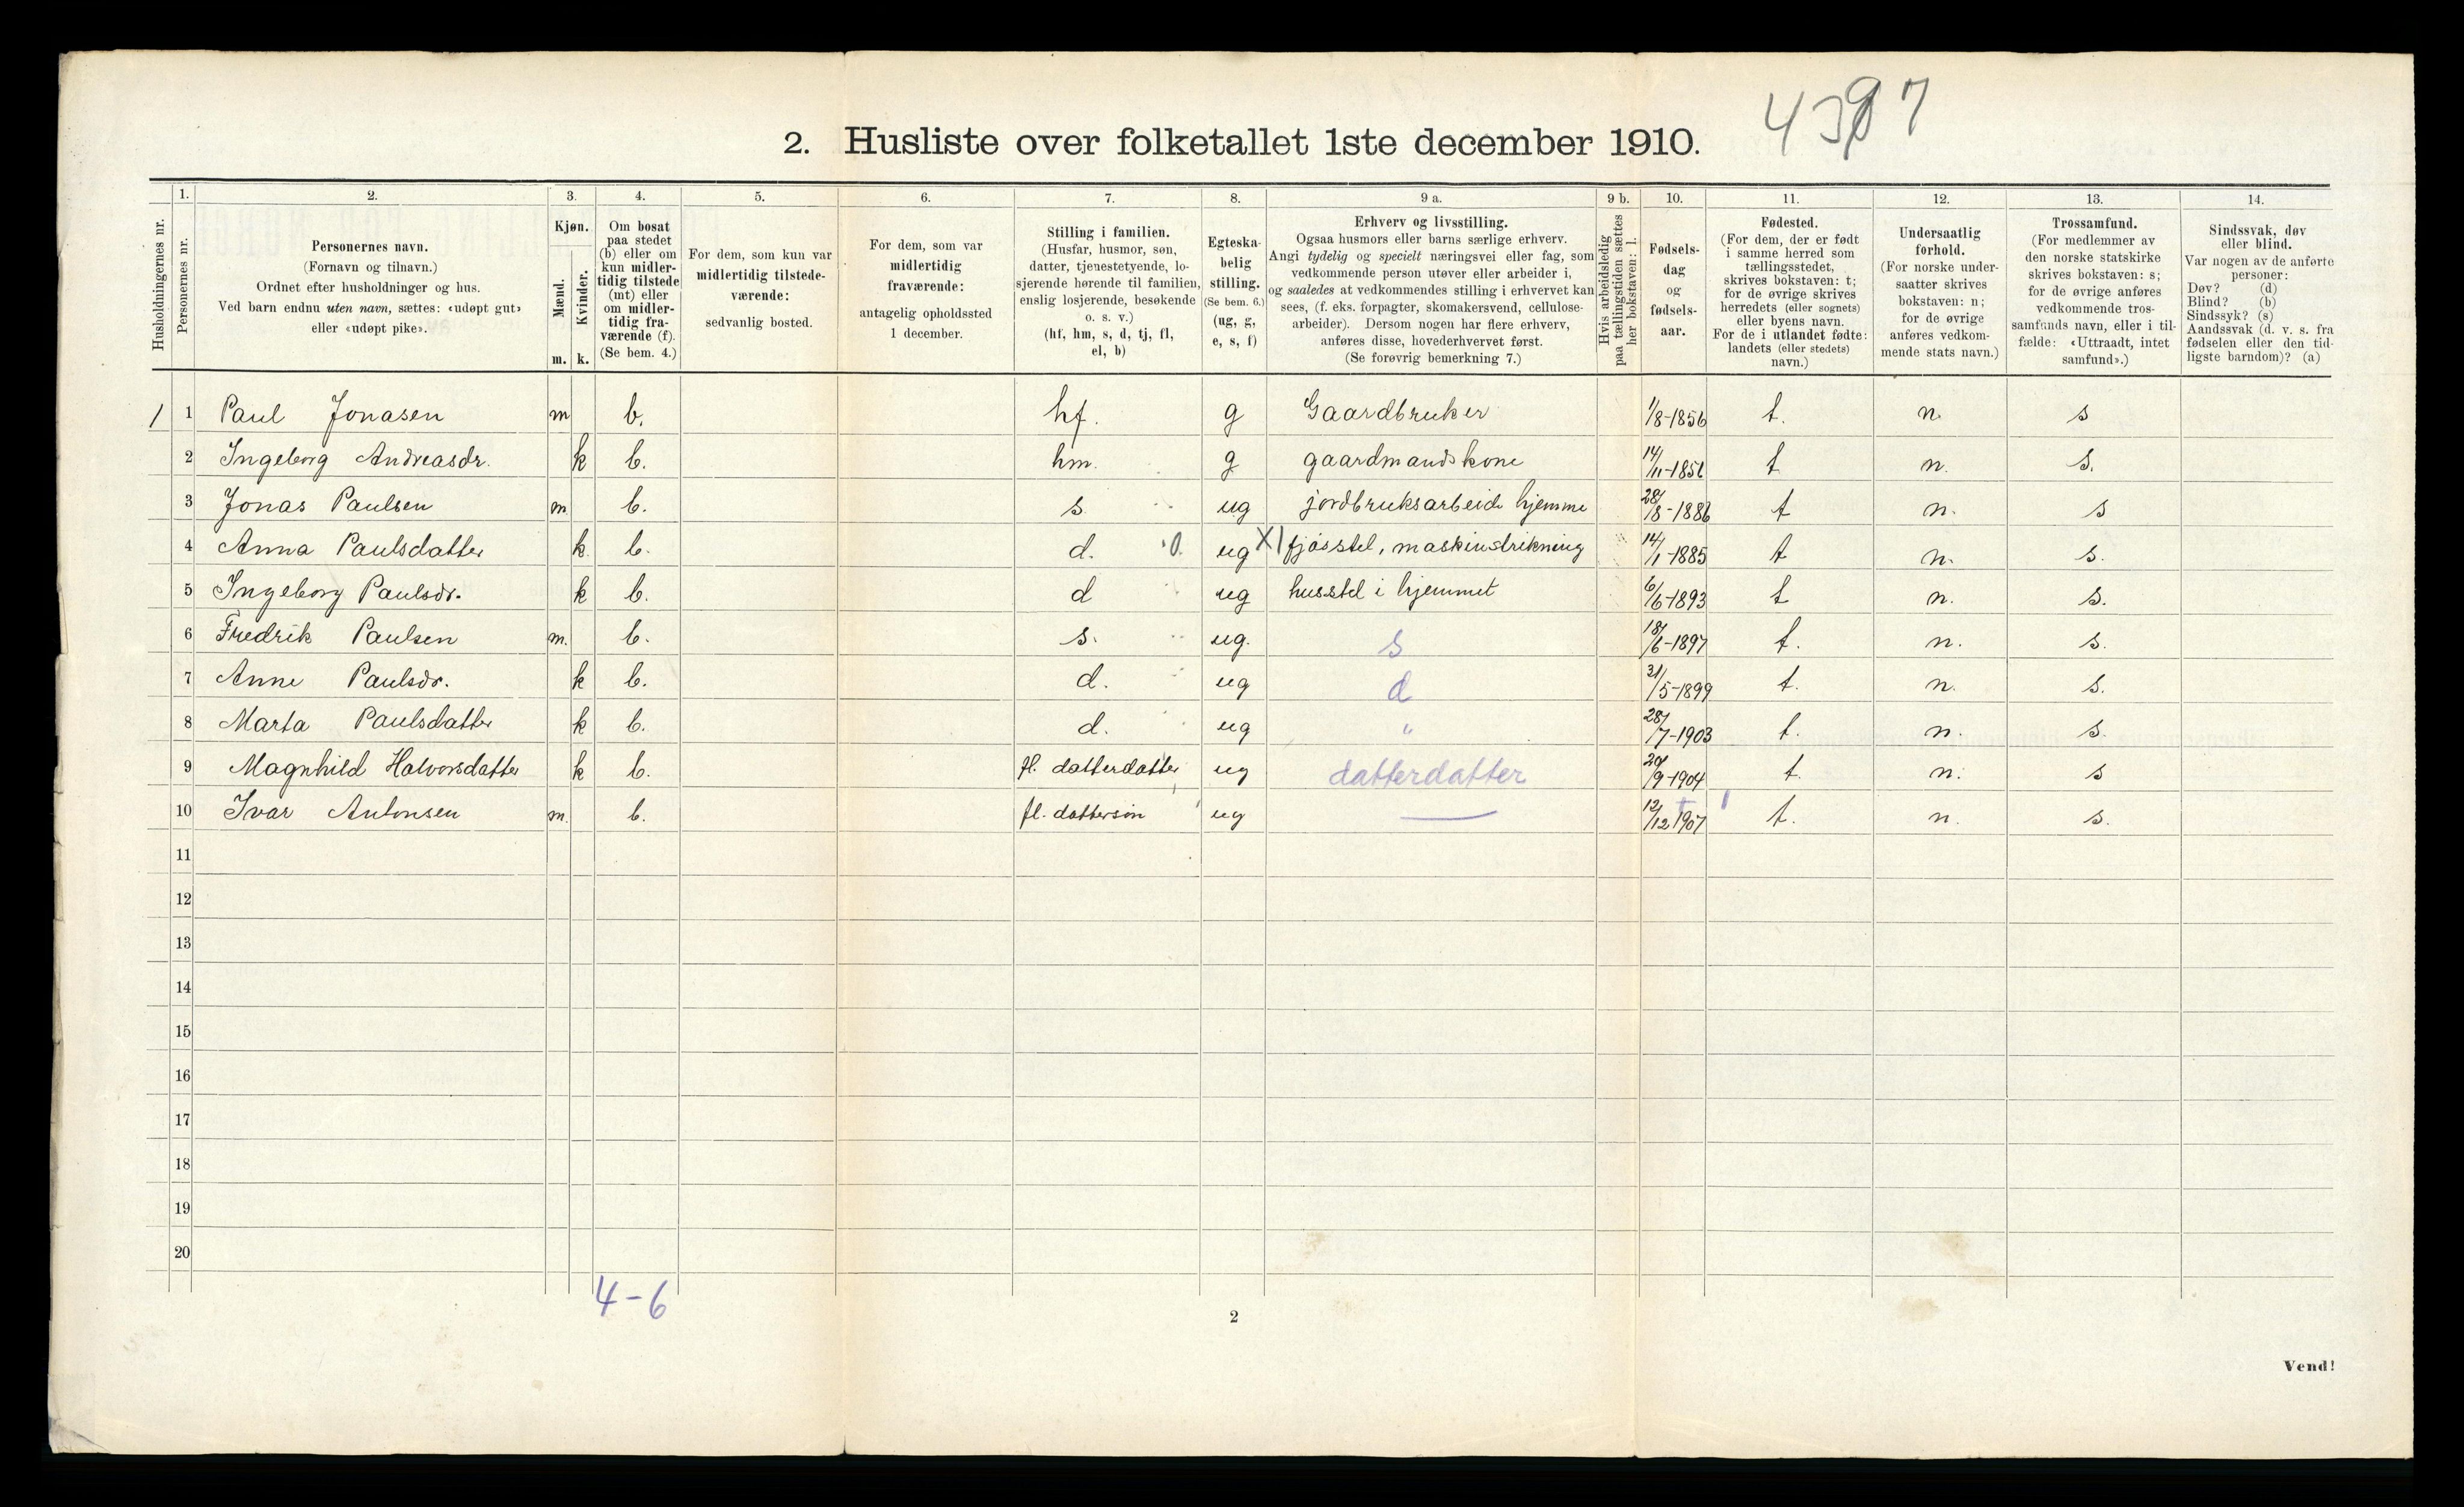 4397
2. Husliste over folketallet 1ste december 1910.
Husholdningernes nr.
1. Personernes nr.
2. Personernes navn.
(Fornavn og tilnavn.)
Ordnet efter husholdninger og hus.
Ved barn endnu uten navn, sættes: «udøpt gut»
eller «udøpt pike».
3. Kjøn.
Mænd. m.
Kvinder. k.
4. Om bosat
paa stedet
(b) eller om
kun midler-
tidig tilstede
(mt) eller
om midler-
tidig fra-
værende (f).
(Se bem. 4.)
5. For dem, som kun var
midlertidig tilstede-
værende:
sedvanlig bosted.
6. For dem, som var
midlertidig
fraværende:
antagelig opholdssted
1 december.
7. Stilling i familien.
(Husfar, husmor, søn,
datter, tjenestetyende, lo-
sjerende hørende til familien,
enslig losjerende, besøkende
o. s. v.)
(hf, hm, s, d, tj, fl,
el, b)
8. Egteska-
belig
stilling.
(Se bem. 6.)
(ug, g,
e, s, f)
9 a. Erhverv og livsstilling.
Ogsaa husmors eller barns særlige erhverv.
Angi tydelig og specielt næringsvei eller fag, som
vedkommende person utøver eller arbeider i,
og saaledes at vedkommendes stilling i erhvervet kan
sees, (f. eks. forpagter, skomakersvend, cellulose-
arbeider). Dersom nogen har flere erhverv,
anføres disse, hovederhvervet først.
(Se forøvrig bemerkning 7.)
9 b. Hvis arbeidsledig
paa tællingstiden sættes
her bokstaven: l.
10. Fødsels-
dag
og
fødsels-
aar.
11. Fødested.
(For dem, der er født
i samme herred som
tællingsstedet,
skrives bokstaven: t;
for de øvrige skrives
herredets (eller sognets)
eller byens navn.
For de i utlandet fødte:
landets (eller stedets)
navn.)
12. Undersaatlig
forhold.
(For norske under-
saatter skrives
bokstaven: n;
for de øvrige
anføres vedkom-
mende stats navn.)
13. Trossamfund.
(For medlemmer av
den norske statskirke
skrives bokstaven: s;
for de øvrige anføres
vedkommende tros-
samfunds navn, eller i til-
fælde: «Uttraadt, intet
samfund».)
14. Sindssvak, døv
eller blind.
Var nogen av de anførte
personer:
Døv? (d)
Blind? (b)
Sindssyk? (s)
Aandssvak (d. v. s. fra
fødselen eller den tid-
ligste barndom)? (a)
1 1 Paul Jonasen m b. hf. g Gaardbruker 1/8-1856 t. n. s
2 Ingeborg Andreasdr. k b. hm. g gaardmandskone 14/11-1851 t n. s.
3 Jonas Paulsen m b. s. ug jordbruksarbeide hjemme 28/8-1886 t n. s
4 Anna Paulsdatter k. b. d. 0. ug X) fjøsstel, maskinstrikning 14/1-1885 t n. s.
5 Ingeborg Paulsdr. k b. d ug husstel i hjemmet 6/6-1893 t n. s.
6 Fredrik Paulsen m. b. s. ug. s 18/6-1897 t. n. s.
7 Anne Paulsdr. k b. d. ug d 31/5-1899 t. n. s.
8 Marta Paulsdatter k b. d. ug " 28/7-1903 t. n. s.
9 Magnhild Halvorsdatter k b. fl. datterdatter ug datterdatter 29/9-1904 t. n. s
10 Ivar Antonsen m. b. fl. dattersøn ug — 12/12 1907 t. n. s.
11
12
13
14
15
16
17
18
19
20
4-6
2
Vend!